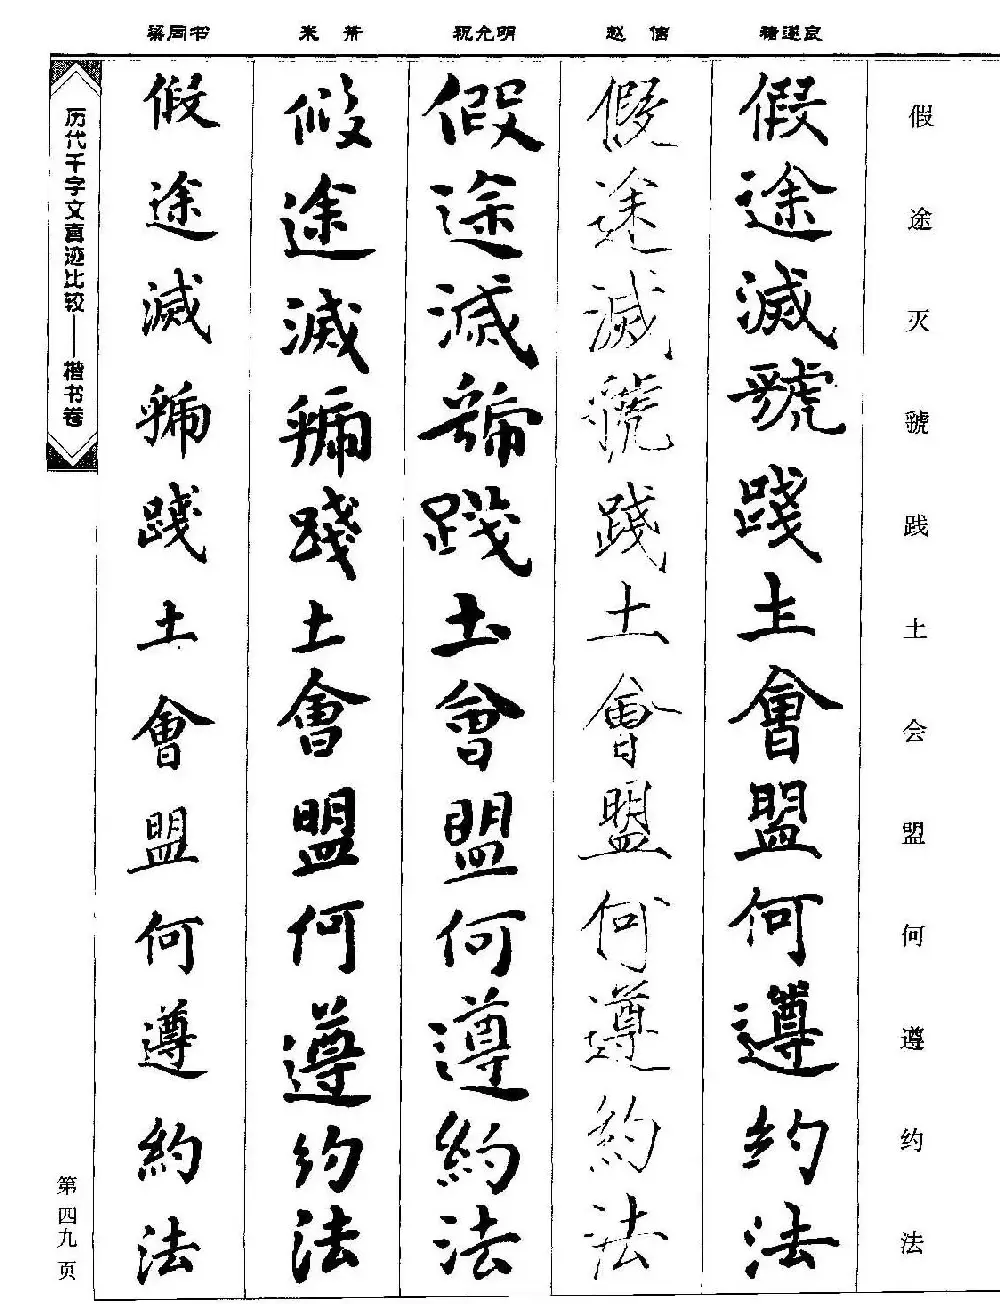 梁同书 米芾 祝允明 赵佶 褚遂良
假途灭虢践土会盟何遵约法
假途滅虢踐土會盟何遵約法
假途滅虢踐土會盟何遵約法
假途滅虢踐土會盟何遵約法
假途滅虢踐土會盟何遵約法
假途滅虢踐土會盟何遵約法
历代千字文真迹比较——楷书卷
第四九页